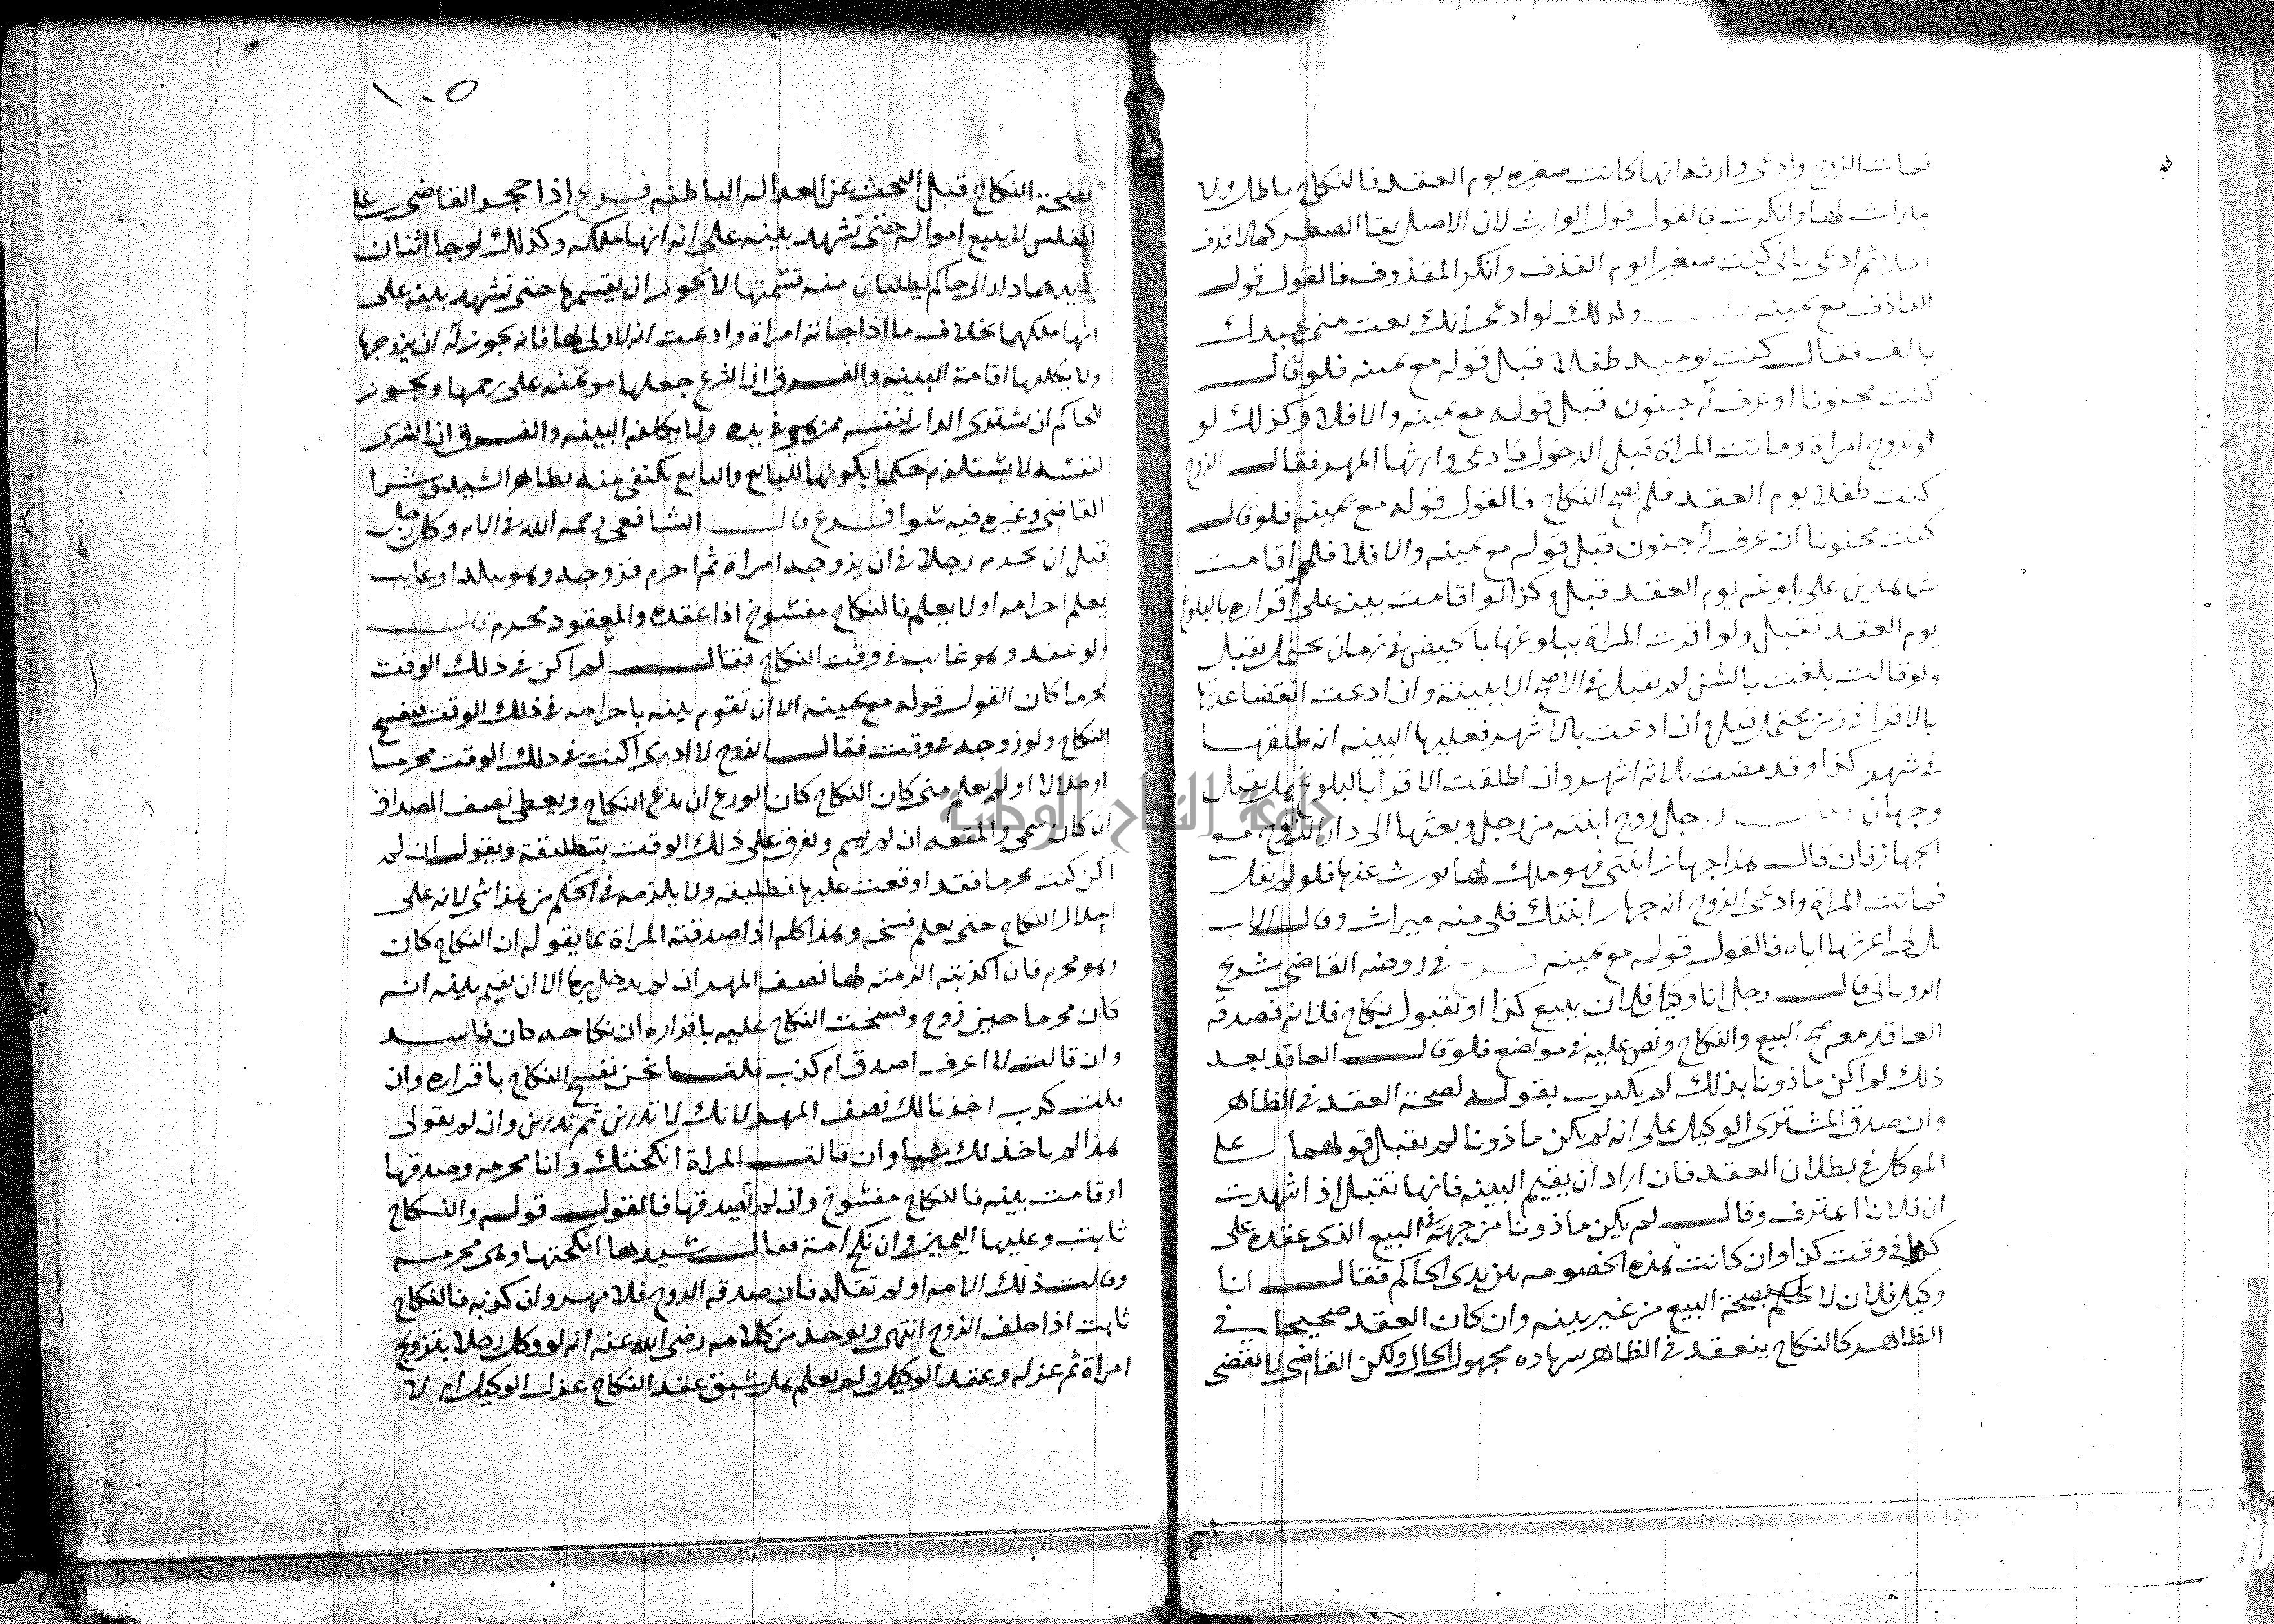 فمات الزوج وادعى وارثه انها كانت صغيره يوم العقد فالنكاح باطل ولا
ميراث لها وانكرت فالقول قول الوارث لان الاصل بقا الصغر كما لو قذف
ثم ادعى باني كنت صغيرا يوم القذف وانكر المقذوف فالقول قول
القاذف مع يمينه وكذلك لو ادعى انك بعت مني عبدك
بالف فقال كنت يوميد طفلا قبل قوله مع يمينه فلو قال
كنت مجنونا او عرف له جنون قبل قوله مع يمينه والا فلا وكذلك لو
لو تزوج امراة وماتت المراة قبل الدخول فادعى وارثها المهر فقال الزوج
كنت طفلا يوم العقد فلم يصح النكاح فالقول قوله مع يمينه فلو قال
كنت مجنونا ان عرف له جنون قبل قوله مع يمينه والا فلا فلو اقامت
شاهدين على بلوغه يوم العقد قبل وكذا لو اقامت بينه على اقراره بالبلوغ
يوم العقد تقبل ولو اقرت المراة ببلوغها بالحيض في زمان يحتمل يقبل
ولو قالت بلغت بالسن لم يقبل في الاصح الا ببينة وان ادعت انقضا عدتها
بالاقرا في زمن محتمل قبل وان ادعت بالاشهر فعليها البينه انه طلقها
في شهر كذا وقد مضت ثلاثه اشهر وان اطلقت الاقرار بالبلوغ هل يقبل
وجهان رجل زوج ابنته من رجل وبعثها الى دار الزوج مع
الجهاز فان قال هذا جهاز ابنتي فهو ملك لها يورث عنها فلو لم يقل
فماتت المراة وادعى الزوج انه جهاز ابنتك فلي منه ميراث وقال الاب
بل اني اعرتها اياه فالقول قوله مع يمينه فرع في روضه القاضي شريح
الروياني قال رجل انا وكيل فلان ببيع كذا او بقبول نكاح فلانه فصدقه
العاقد معه صح البيع والنكاح ونص عليه في مواضع فلو قال العاقد بعد
ذلك لم اكن ماذونا بذلك لم يكترث بقوله لصحة العقد في الظاهر
وان صدق المشترى الوكيل على انه لم يكن ماذونا لم يقبل قولهما على
الموكل في بطلان العقد فان اراد ان يقيم البينه فانها تقبل اذا شهدت
ان فلانا اعترف وقال لم يكن ماذونا من جهته في البيع الذي عقده على
كذا في وقت كذا وان كانت هذه الخصومه بين يدى الحاكم فقال انا
وكيل فلان لا يحكم بصحة البيع من غير بينه وان كان العقد صحيحا في
الظاهر كالنكاح ينعقد في الظاهر بشهاده مجهول الحال ولكن القاضي لا يقضى
١٠٥
بصحة النكاح قبل البحث عن العداله الباطنه فرع اذا حجر القاضي على
المفلس لا يبيع امواله حتى تشهد بينه على انه انها ملكه وكذلك لو جا اثنان
بيدهما دار الى حاكم يطلبان منه قسمتها لا يجوز ان يقسمها حتى تشهد بينه على
انها ملكهما بخلاف ما اذا جاته امراة وادعت انه لا ولي لها فانه يجوز له ان يزوجها
ولا يكلفها اقامة البينه والفرق ان الشرع جعلها موتمنه على رحمها ويجوز
للحاكم ان يشترى الدار لنفسه ممن هي في يده ولا يكلفه البينه والفرق ان الشرى
لنفسه لا يستلزم حكما بكونها للبايع والبايع يكتفي منه بظاهر اليد وشرا
القاضي وغيره فيه سوا فرع قال الشافعي رحمه الله في الام وكل رجل
قبل ان يحرم رجلا في ان يزوجه امراة ثم احرم فزوجه وهو ببلد او غايب
يعلم احرامه او لا يعلم فالنكاح مفسوخ اذا عقده والمعقود محرم قال
ولو عقد وهو غايب في وقت النكاح فقال لم اكن في ذلك الوقت
محرما كان القول قوله مع يمينه الا ان تقوم بينه باحرامه في ذلك الوقت فيفسخ
النكاح ولو زوجه في وقت فقال الزوج لا ادرى اكنت في ذلك الوقت محرما
او حلالا او لم يعلم متى كان النكاح كان الورع ان يدع النكاح ويعطى نصف الصداق
ان كان سمى والمتعه ان لم يسم ويفرق على ذلك الوقت بتطليقة ويقول ان لم
اكن كنت محرما فقد اوقعت عليها تطليقه ولا يلزمه في الحكم من هذا شي لانه على
احلال النكاح حتى يعلم فسخه وهذا كله اذا صدقته المراة بما يقوله ان النكاح كان
وهو محرم فان اكذبته الزمته لها نصف المهر ان لم يدخل بها الا ان يقيم بينه انه
كان محرما حين زوج وفسخت النكاح عليه باقراره ان نكاحه كان فاسد
وان قالت لا اعرف اصدق ام كذب قلنا نحن نفسخ النكاح باقراره وان
قلت كذب اخذنا لك نصف المهر لانك لا تدرين ثم تدرين وان لم تقولى
هذا لم ناخذ لك شيا وان قالت المراة انكحتك وانا محرمه وصدقها
او قامت بينه فالنكاح مفسوخ وان لم يصدقها فالقول قوله والنكاح
ثابت وعليها اليمين وان نكح امة فقال سيدها انكحتها وهى محرمه
وقالت ذلك الامه او لم تقله فان صدقه الزوج فلا مهر وان كذبه فالنكاح
ثابت اذا حلف الزوج انتهى ويوخذ من كلامه رضى الله عنه انه لو وكل رجلا بتزويج
امراة ثم عزله وعقد الوكيل ولم يعلم هل سبق عقد النكاح عزل الوكيل ام لا
جامعة النجاح الوطنية